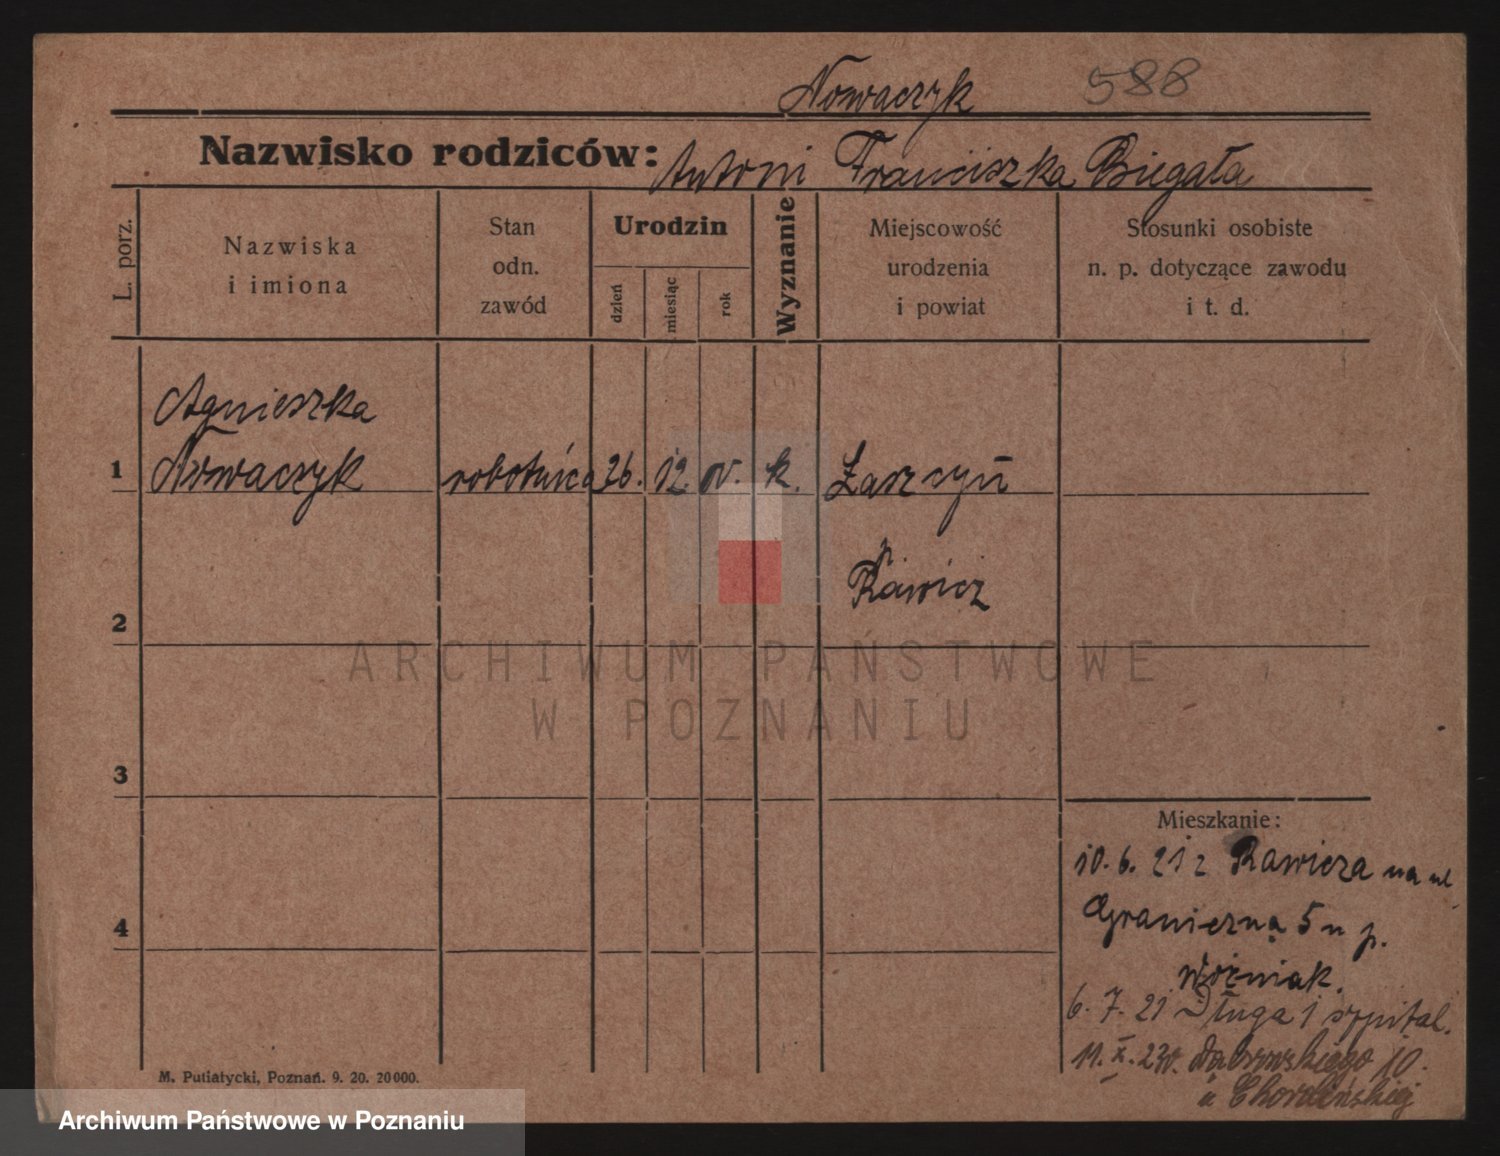 Nowaczyk 588
Nazwisko rodziców: Antoni Franciszka Biegała
L. porz.
Nazwiska
i imiona
Stan
odn.
zawód
Urodzin
dzień
miesiąc
rok
Wyznanie
Miejscowość
urodzenia
i powiat
Stosunki osobiste
n. p. dotyczące zawodu
i t. d.
Agnieszka
1 Nowaczyk robotnica 26. 12. 01. k. Łaszczyn
p.
Rawicz
2
ARCHIWUM PAŃSTWOWE
W POZNANIU
3
Mieszkanie:
10. 6. 21 z Rawicza na ul
4 Graniczną 5 u p.
Woźniak.
6. 7. 21 Długa 1 szpital.
11. X. 23 Dąbrowskiego 10.
u
M. Putiatycki, Poznań. 9. 20. 20000.
Archiwum Państwowe w Poznaniu